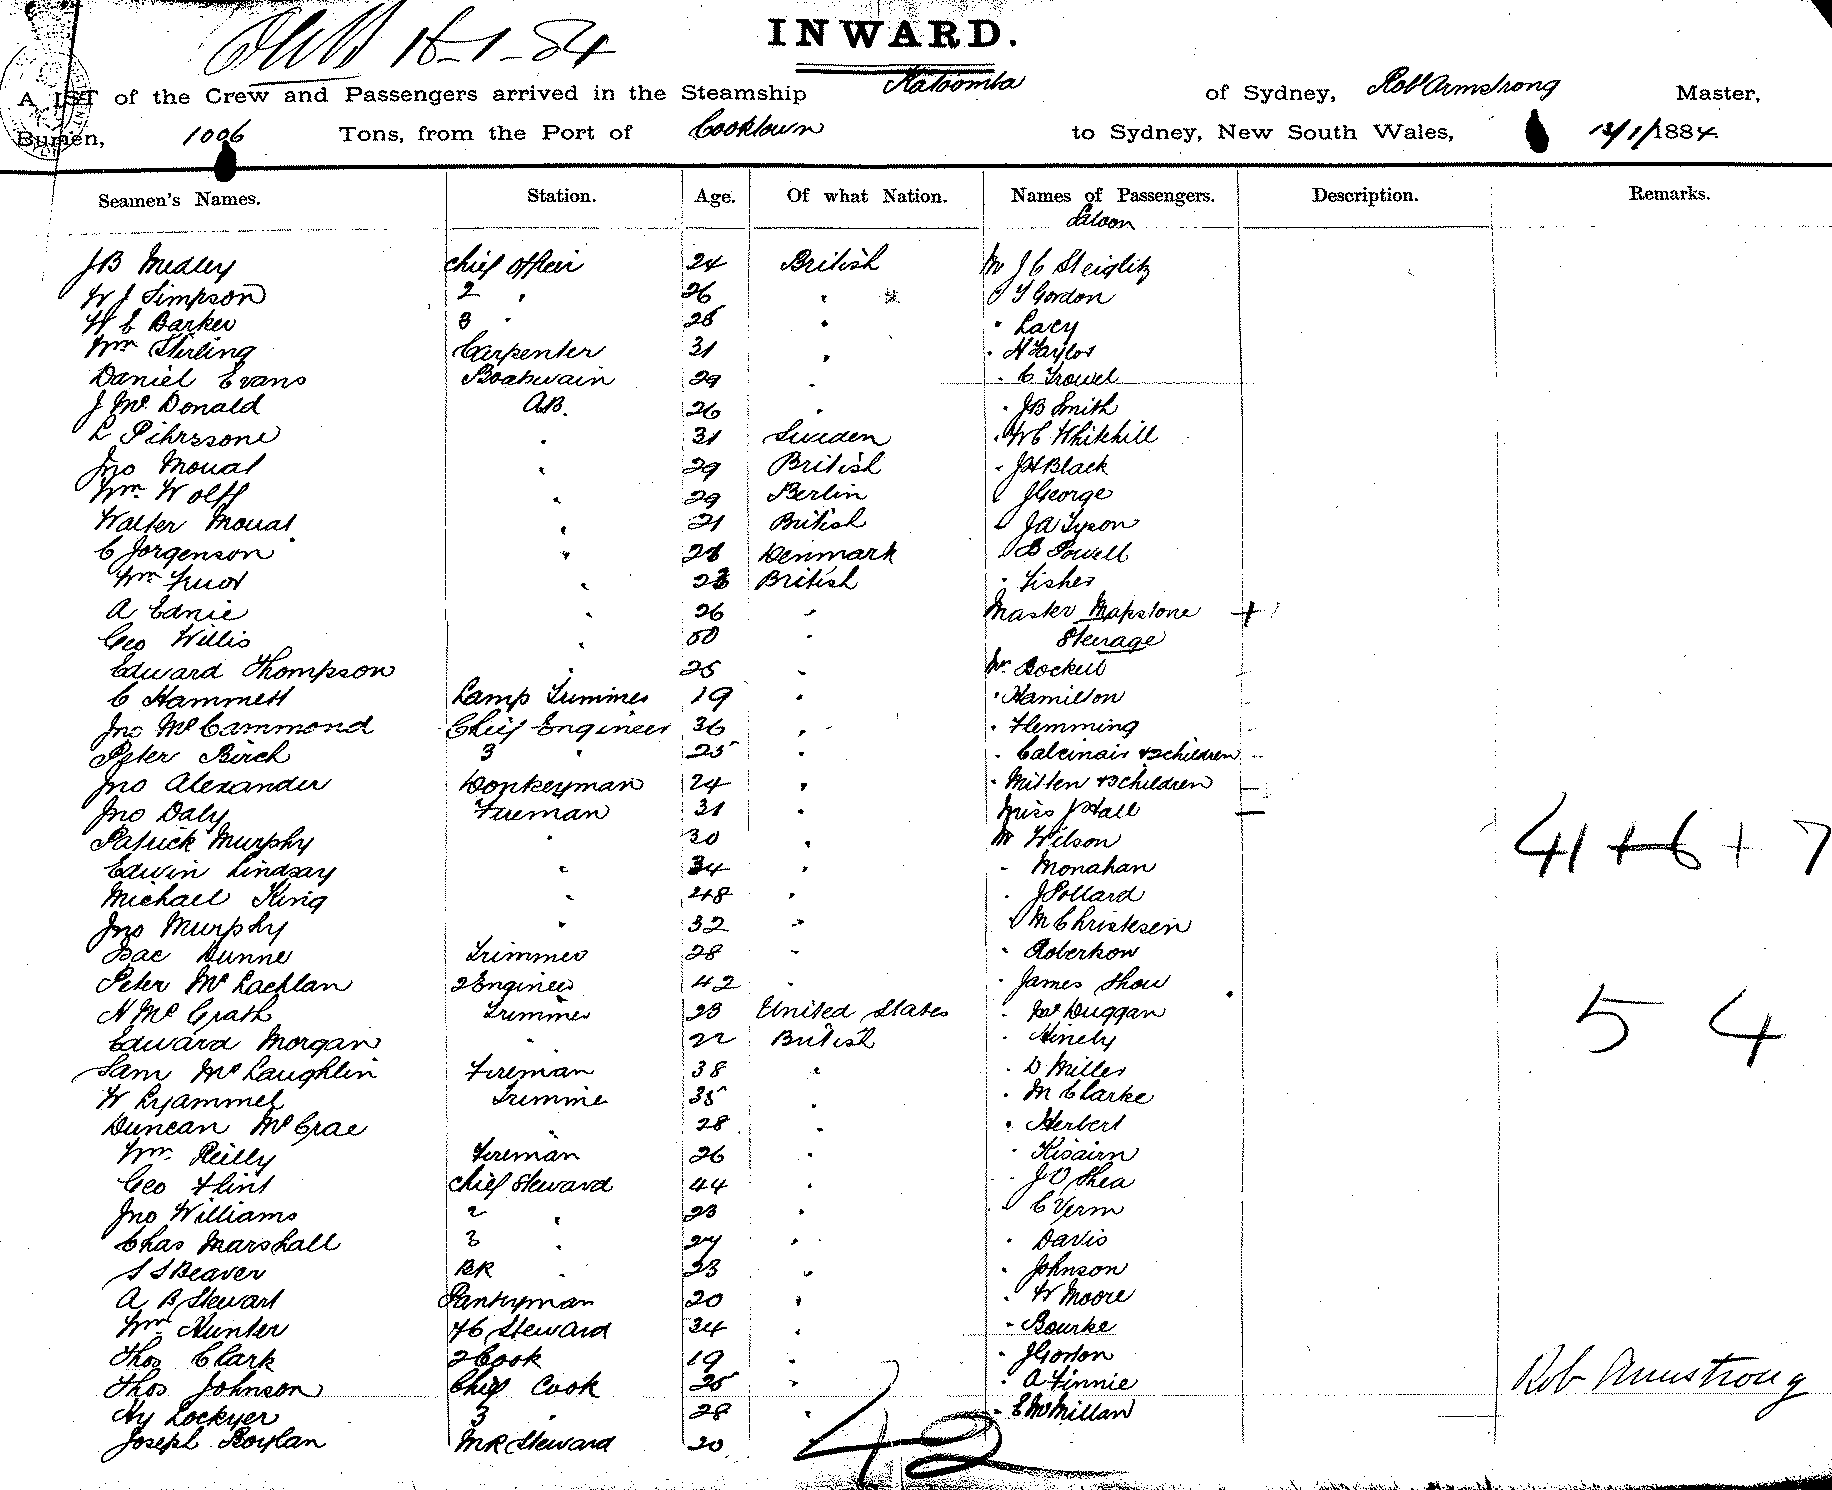 16-1-84
INWARD.
A LIST of the Crew and Passengers arrived in the Steamship Katoomba of Sydney, Rob Armstrong Master,
Burden, 1006 Tons, from the Port of Cooktown to Sydney, New South Wales, 13/1/1884
Seamen's Names. Station. Age. Of what Nation. Names of Passengers. Description. Remarks.
Saloon
J B Medley Chief Officer 24 British Mr J C Steiglitz
W J Simpson 2 " 26 " " T Gordon
W C Barker 3 " 28 " " Lacy
Wm Stirling Carpenter 31 " " H Taylor
Daniel Evans Boatswain 29 " " C Trowel
J Mc Donald A.B. 26 " " J B Smith
L Pihrssone " 31 Sweden " W C Whitehill
Jno Mouat " 29 British " J H Black
Wm Wolff " 29 Berlin " J George
Walter Mouat " 21 British " J A Tyson
C Jorgenson " 28 Denmark " B Powell
Wm " 23 British " Fisher
A Ednie " 26 " Master Mapstone +
Geo Willis " 50 " Steerage
Edward Thompson " 25 " Mr Bockell
C Hammett Lamp Trimmer 19 " " Hamilton
Jno McCammond Chief Engineer 36 " " Flemming
Peter Birch 3 " 25 " " Calcinais & 3 children
Jno Alexander Donkeyman 24 " " Mitten & 3 children
Jno Daly Fireman 31 " Miss J Hall
Patrick Murphy " 30 " Mr Wilson 41 + 6 + 7
Edwin Lindsay " 34 " " Monahan
Michael King " 48 " " J Pollard
Jno Murphy " 32 " " M Christesen
Isac Dunne Trimmer 28 " " Robertson
Peter Mc Lachlan 2 Engineer 42 " " James Shaw
N Mc Grath Trimmer 23 United States " Duggan 54
Edward Morgan " 22 British " Hinely
Sam McLaughlin Fireman 38 " " D Miller
W Lyammel Trimme 35 " " M Clarke
Duncan McCrae " 28 " " Herbert
Wm Reilly Fireman 26 " " Kisairn
Geo Flint Chief Steward 44 " " J O Shea
Jno Williams 2 " 23 " " C Verm
Chas Marshall 3 " 27 " " Davis
S S Beaver BR " 23 " " Johnson
A B Stewart Pantryman 20 " " W Moore
Wm Hunter FC Steward 34 " " Bourke
Thos Clark 2 Cook 19 " " J Gordon
Thos Johnson Chief Cook 25 " " A Finnie Rob Armstrong
Hy Lockyer 3 " 28 " " E McMillan
Joseph Boylan MR Steward 20
42